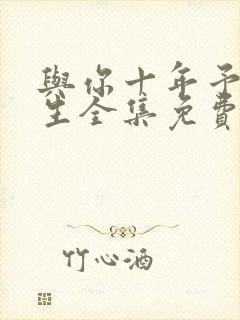 與你十年予
生全集免費
竹心酒